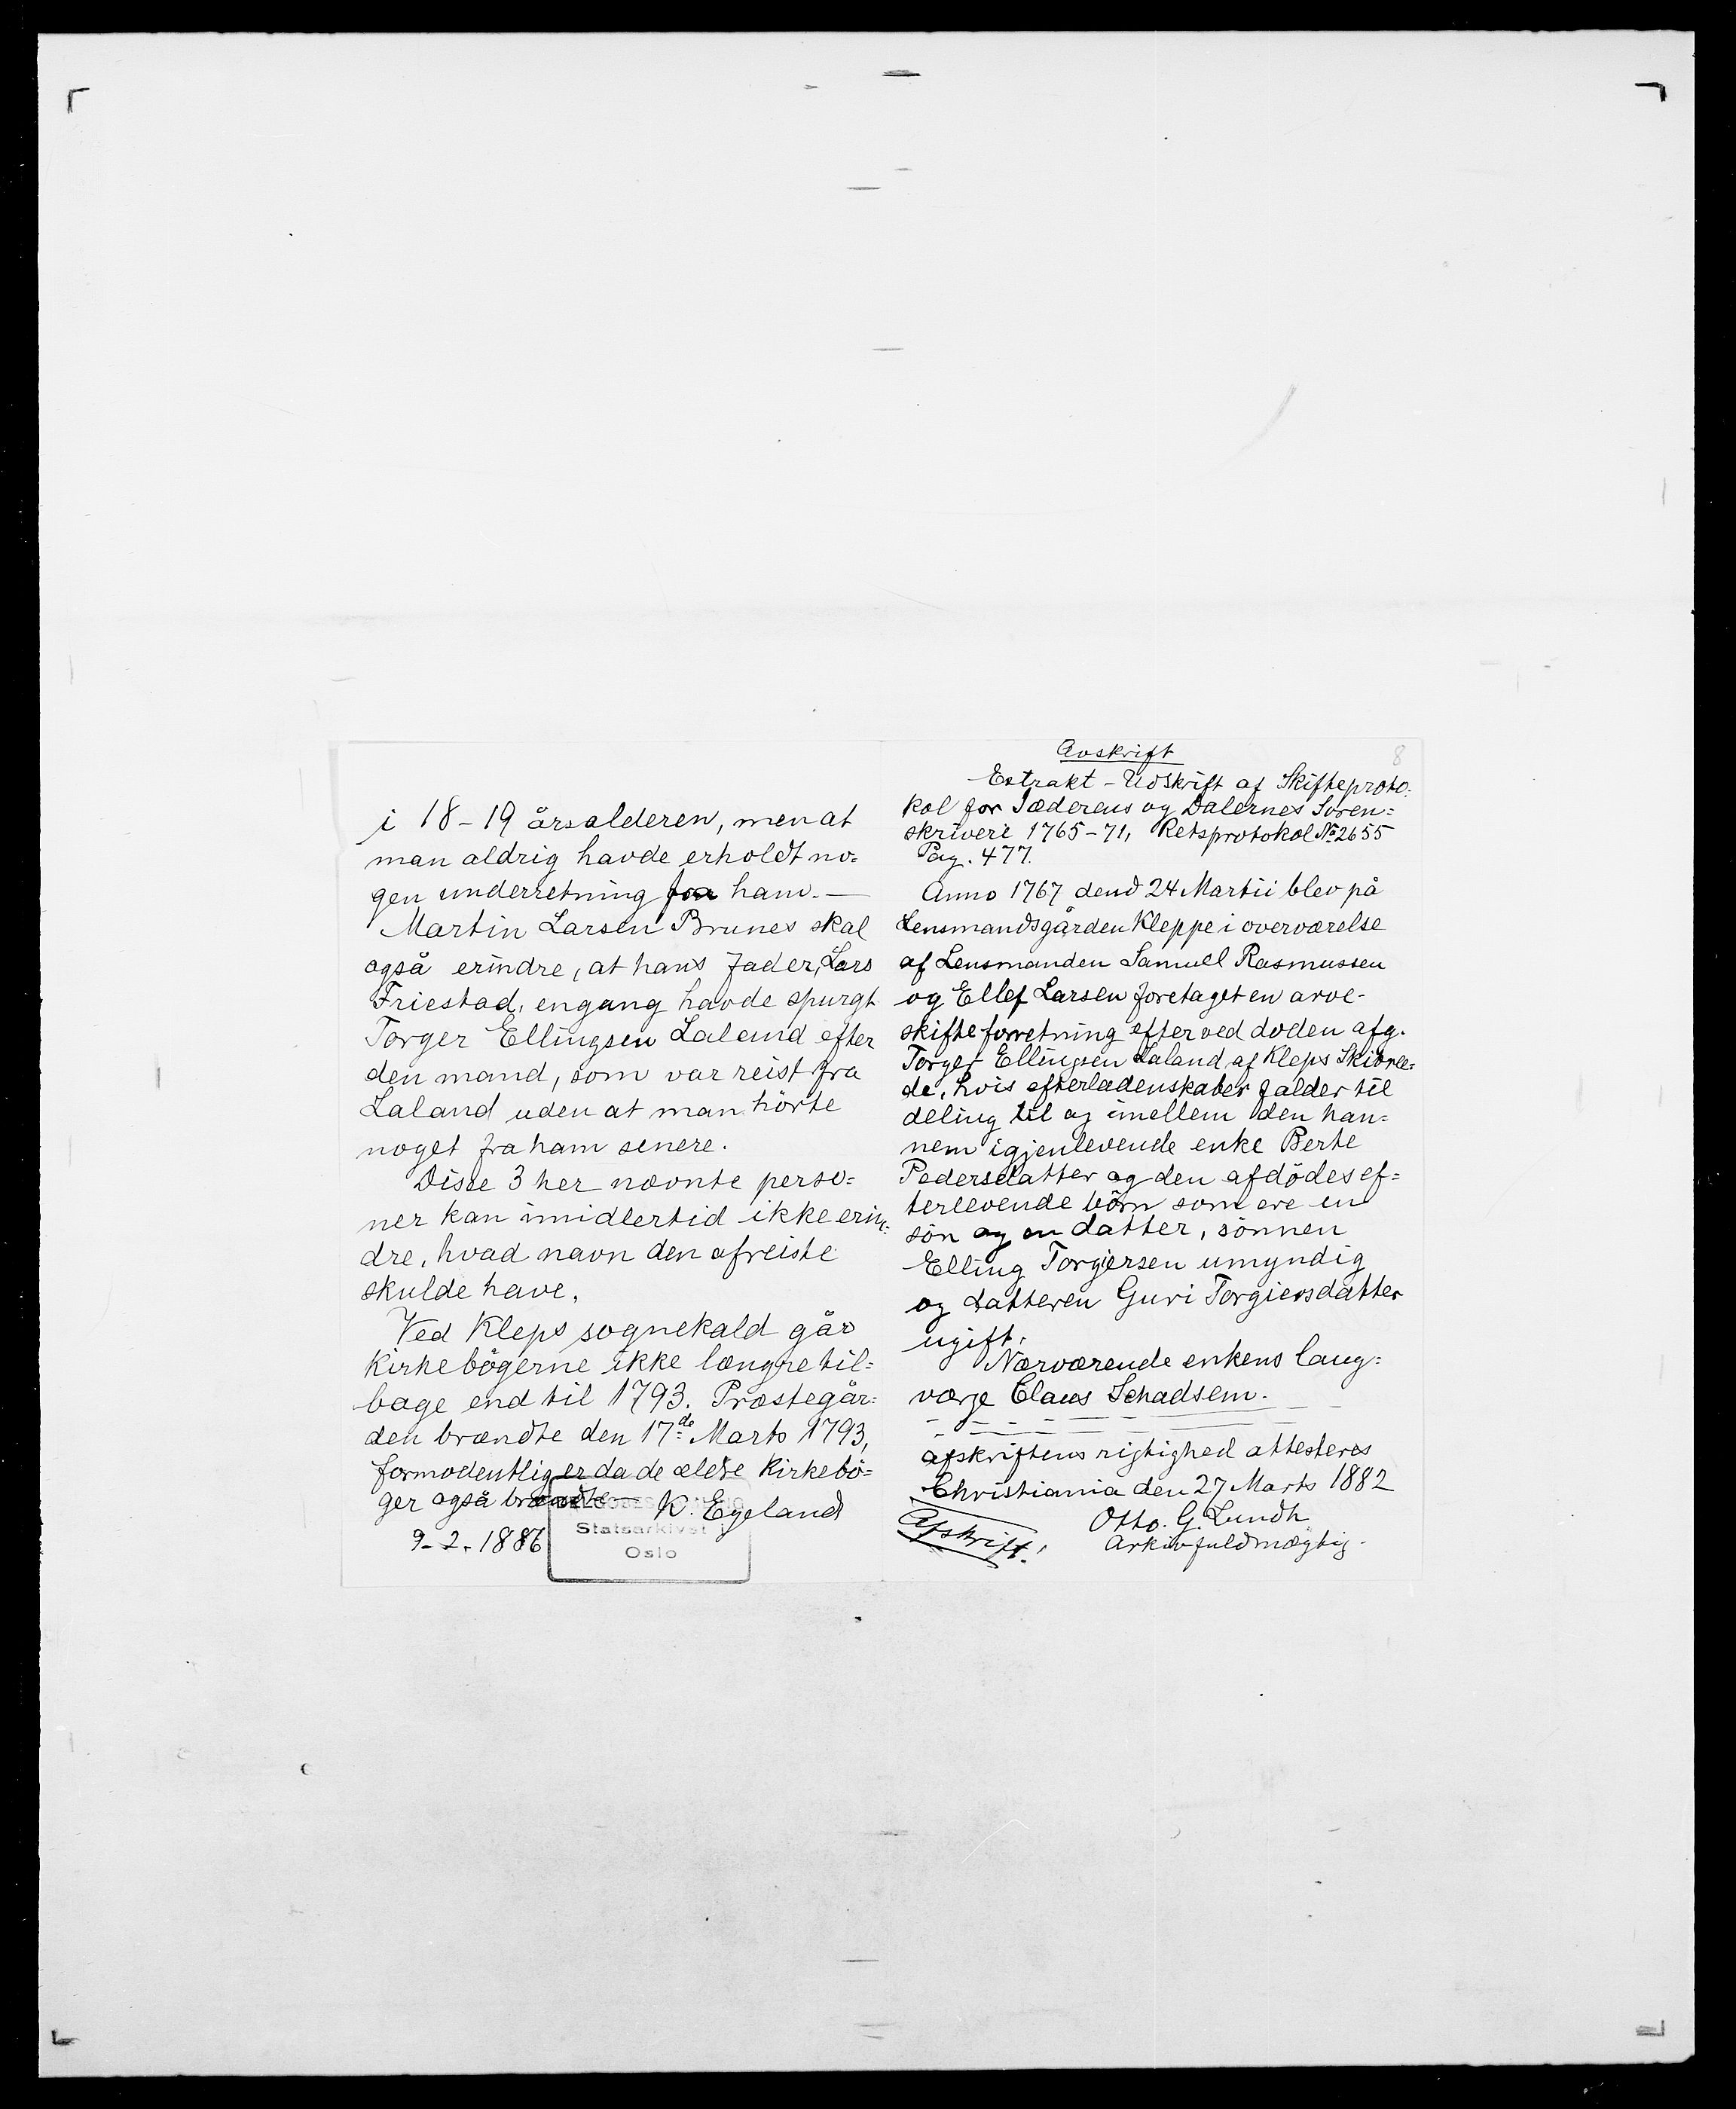 i 18-19 årsalderen, men at
man aldrig havde erholdt no=
gen underretning fra ham. —
Martin Larsen Brunes skal
også erindre, at hans fader, Lars
Friestad, engang havde spurgt
Torger Ellingsen Laland efter
den mand, som var reist fra
Laland uden at man hörte
noget fra ham senere.
Disse 3 her nævnte perso=
ner kan imidlertid ikke erin=
dre, hvad navn den afreiste
skulde have.
Ved Kleps sognekald går
Kirkebögerne ikke længre til=
bage end til 1793. Præstegår=
den brændte den 17de Marts 1793,
formodentlig er da de ældre Kirkebö=
ger også brændte — K. Egeland
9-2. 1886
Statsarkivet i
Oslo
8
Avskrift
Extrakt - Udskrift af Skifteproto=
kol for Jæderens og Dalernes Soren=
skriveri 1765-71, Retsprotokol No 2655
Pag. 477.
Anno 1767 dend 24 Martii blev på
Lensmandsgården Kleppe i overværelse
af Lensmanden Samuel Rasmussen
og Ellef Larsen foretaget en arve-
skifteforretning efter ved döden afg.
Torger Ellingsen Laland af Kleps Skibre=
de, hvis efterladenskaber falder til
deling til og imellem den han=
nem igjenlevende enke Berte
Pedersdatter og den afdödes ef=
terlevende börn som ere en
sön og en datter, sönnen
Elling Torgjersen umyndig
og datteren Guri Torgiersdatter
ugift.
Nærværende enkens laug=
værge Claus Schadsem.
afskriftens rigtighed attesteres
Christiania den 27 Marts 1882
Otto. G. Lundh
Afskrift! Arkivfuldmægtig.